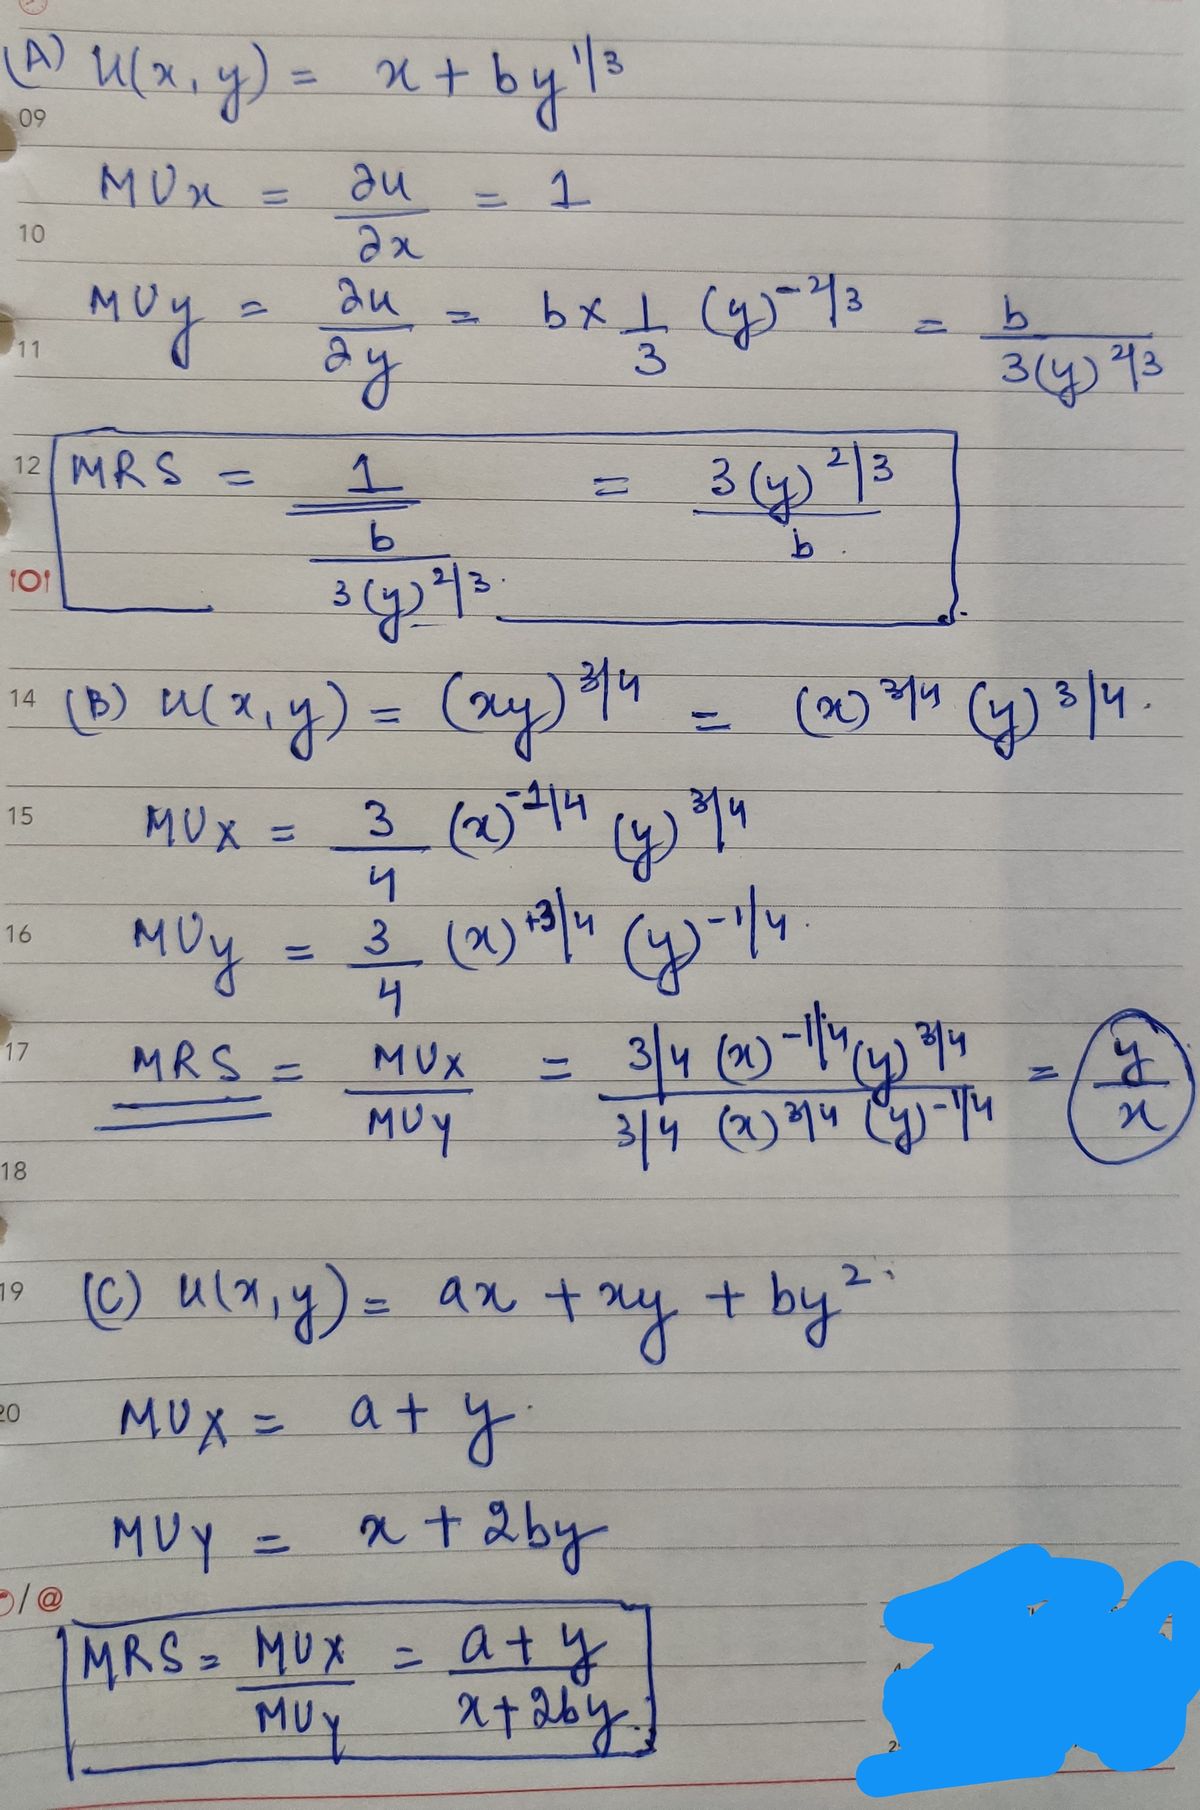 (A) U(x, y) = x + by^1/3
09
MUx = ∂u/∂x = 1
10
MUy = ∂u/∂y = b × 1/3 (y)^-2/3 = b/3(y)^2/3
11
12 MRS = 1/(b/3(y)^2/3) = 3(y)^2/3 / b
14 (B) U(x, y) = (xy)^3/4 = (x)^3/4 (y)^3/4.
15 MUX = 3/4 (x)^-1/4 (y)^3/4
16 MUy = 3/4 (x)^+3/4 (y)^-1/4.
17 MRS = MUX/MUY = 3/4 (x)^-1/4 (y)^3/4 / 3/4 (x)^3/4 (y)^-1/4 = y/x
18
19 (C) U(x, y) = ax + xy + by^2.
20 MUX = a + y.
MUY = x + 2by
/@
MRS = MUX/MUY = a + y / x + 2by